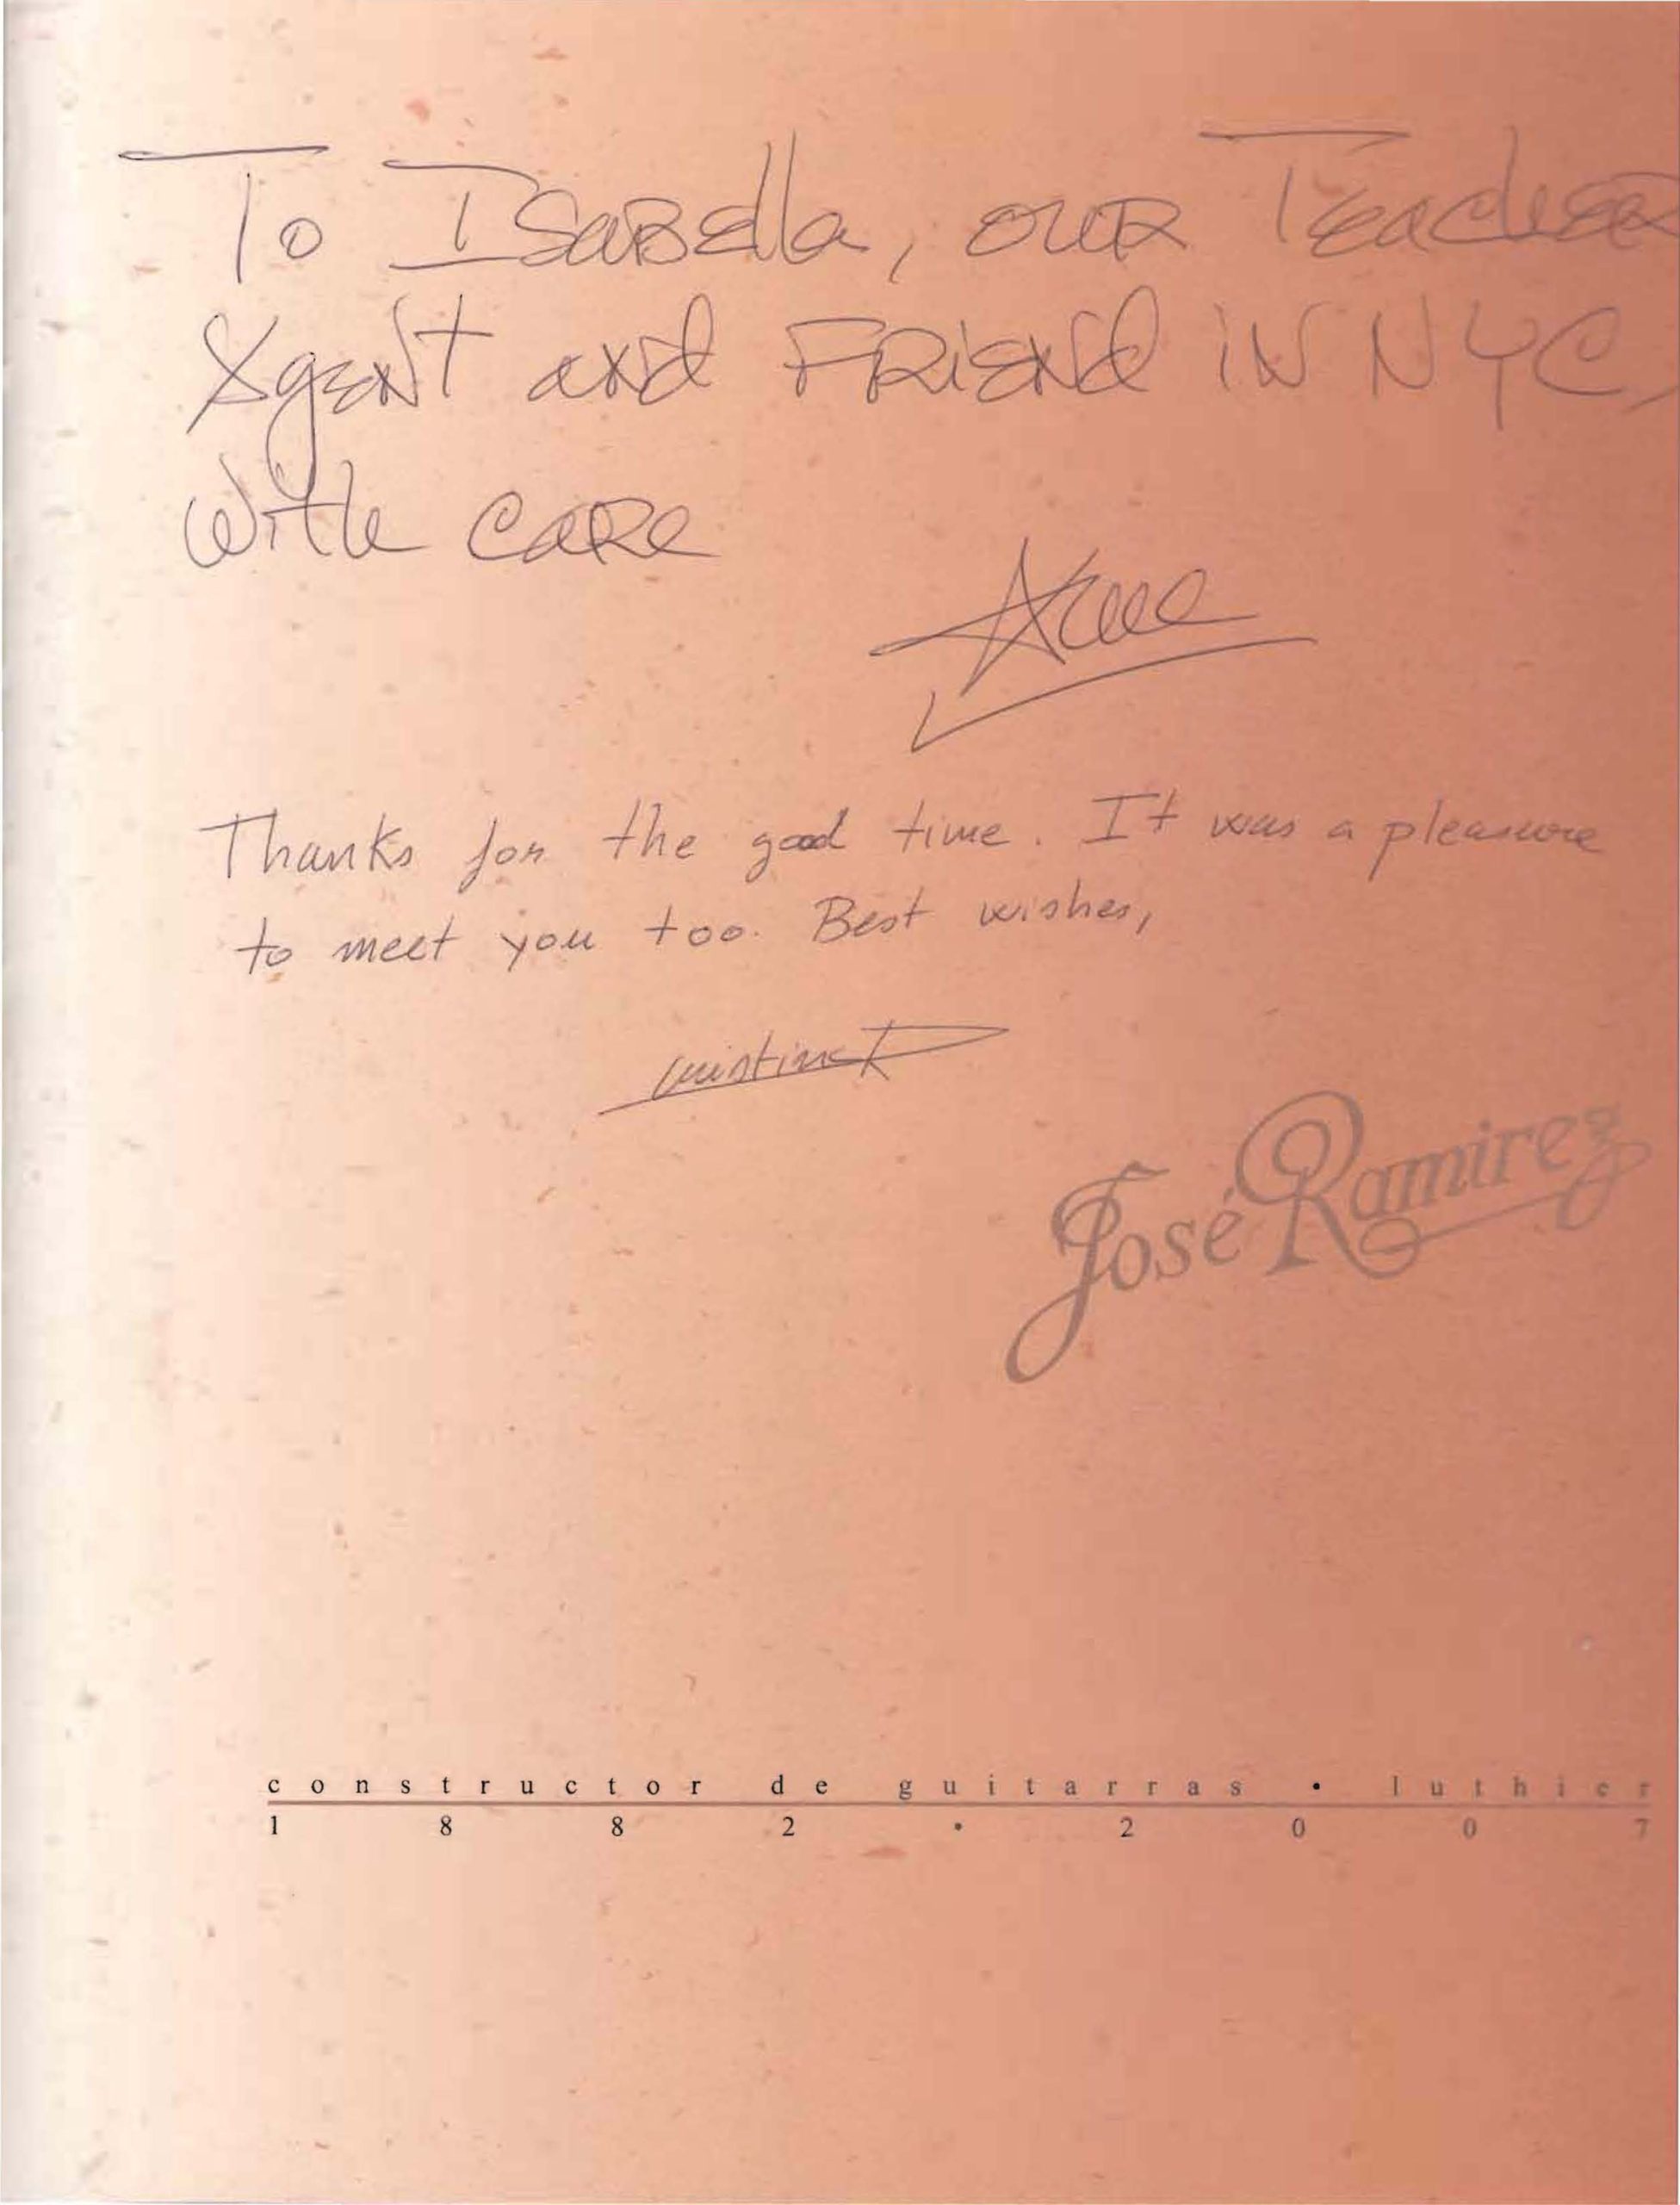 To Isabella, our Teacher
Agent and Friend in NYC,
With care
Thanks for the good time. It was a pleasure
to meet you too. Best wishes,
José Ramirez
constructor de guitarras • luthier
1882 • 2007